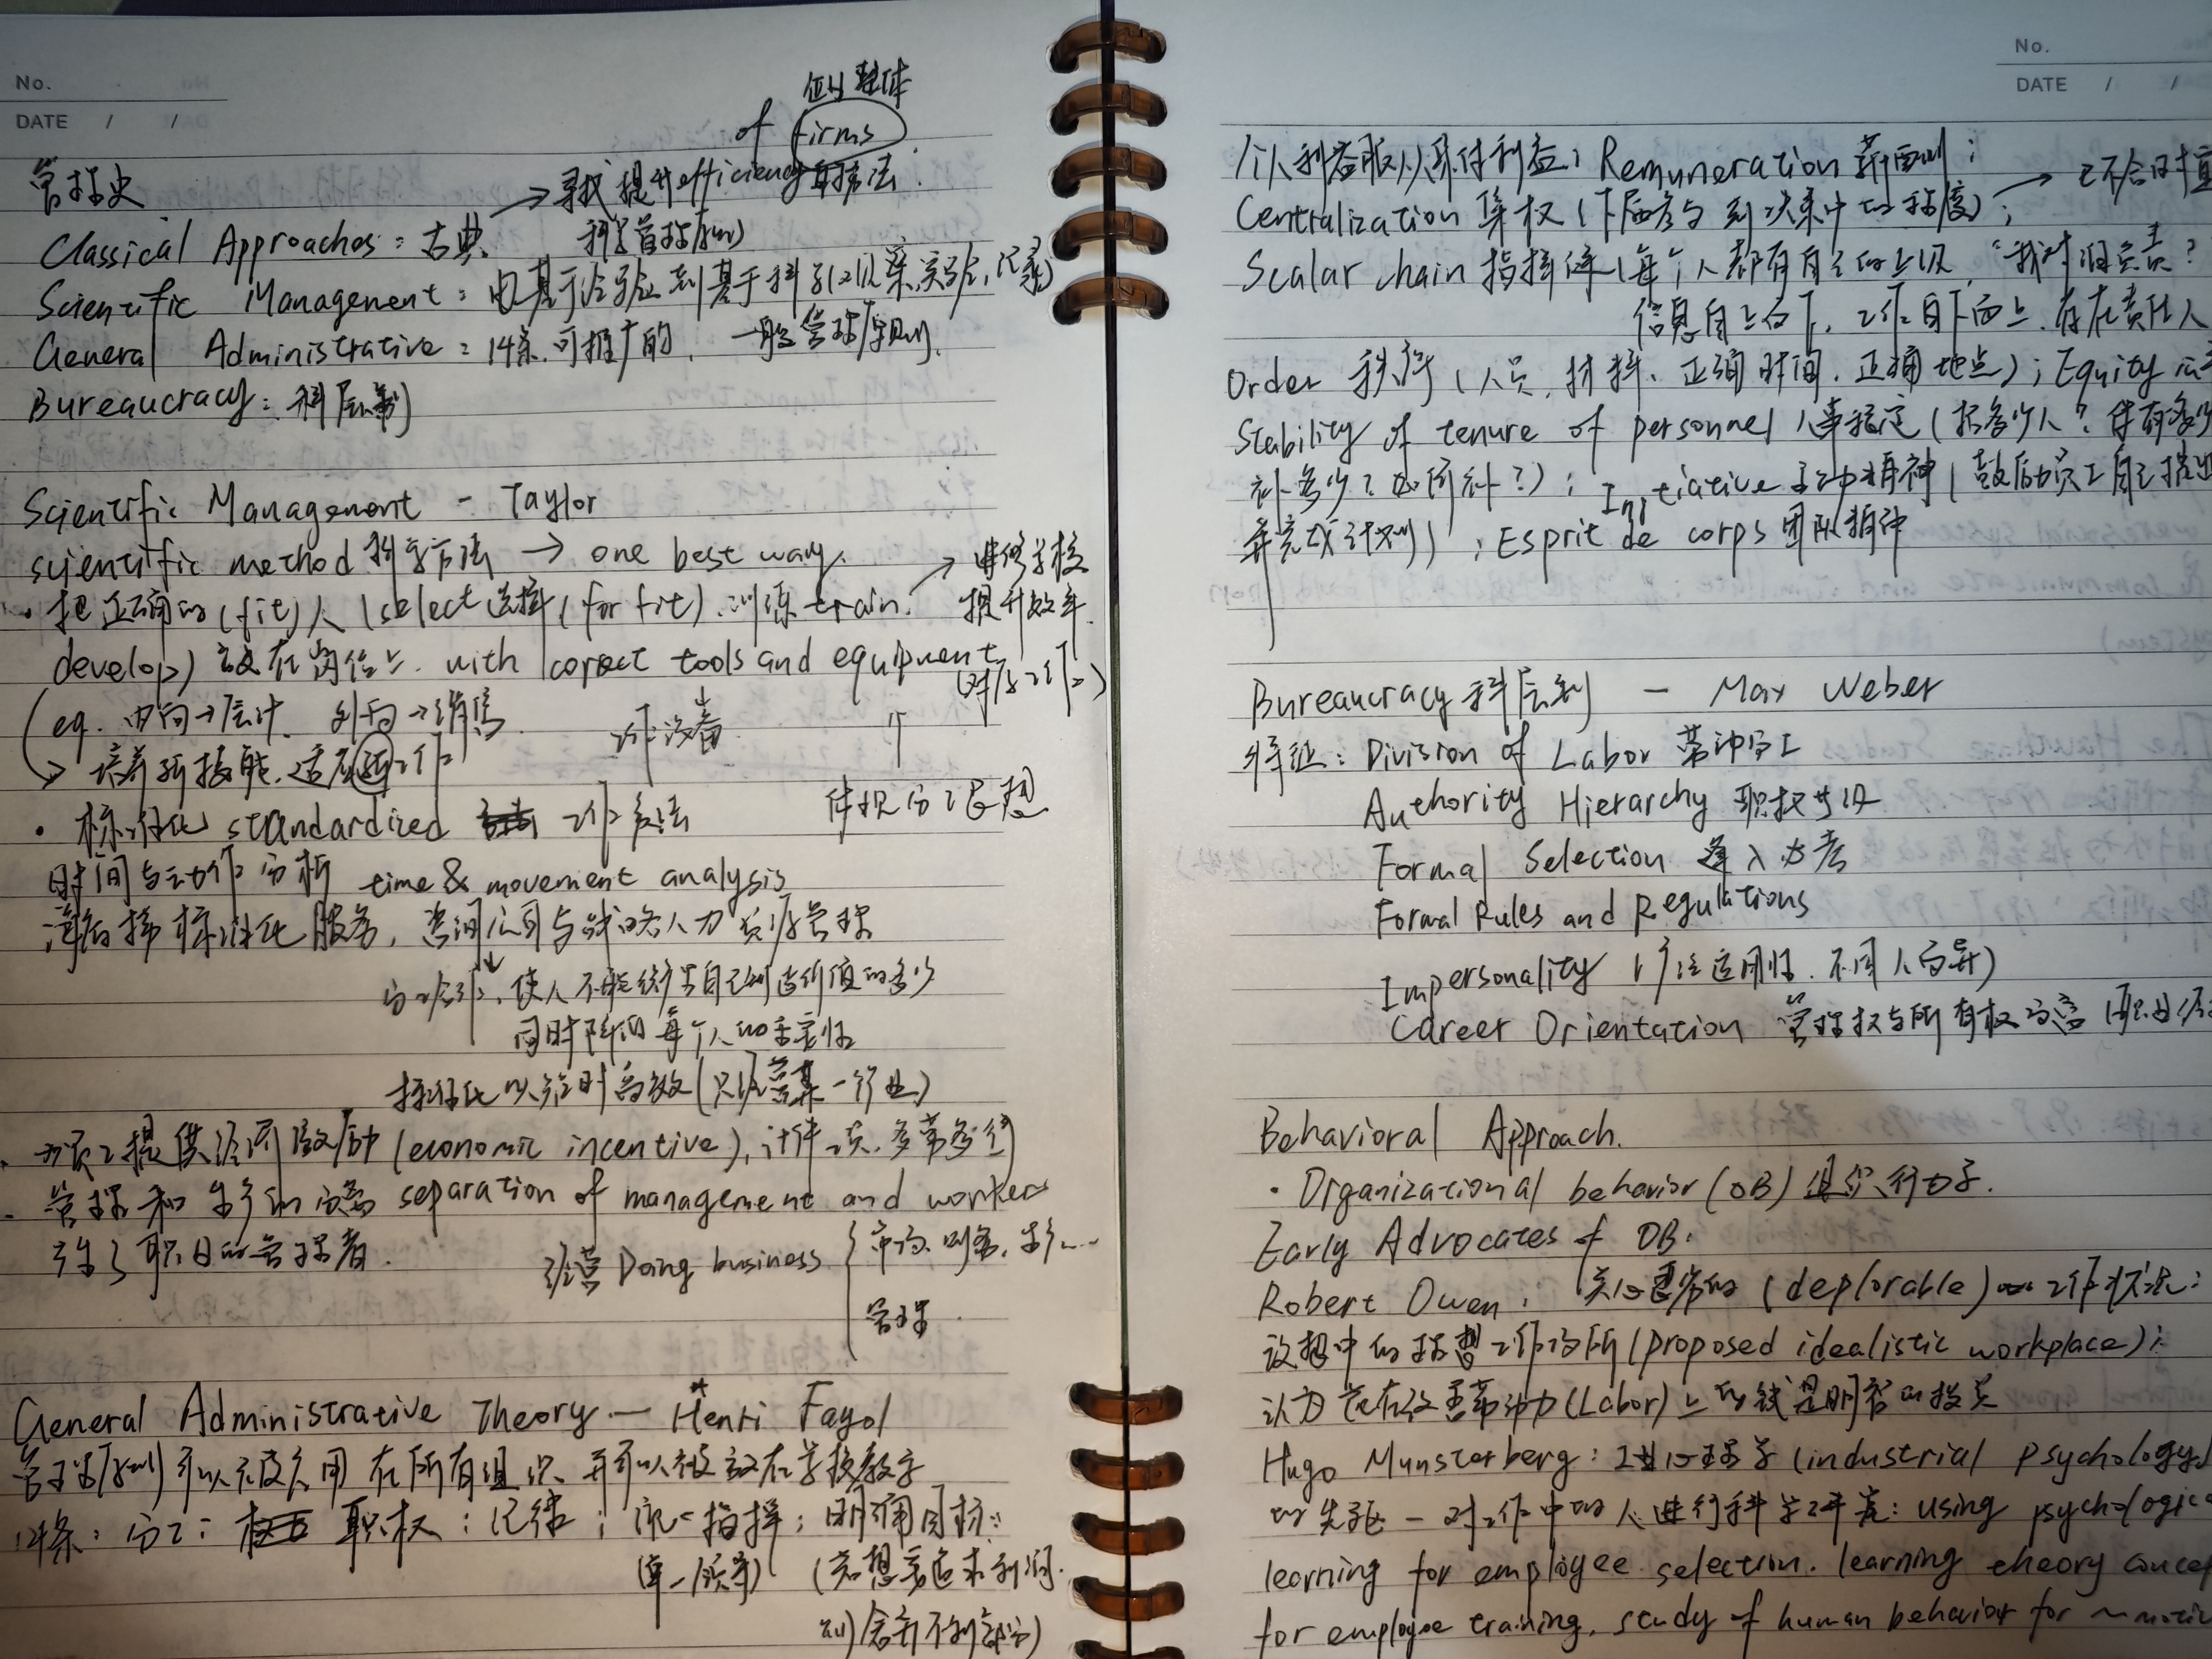 No.
DATE / /
企业整体
of firms
管理史 → 寻找提升efficiency的方法.
Classical Approaches: 古典 科学管理原则
Scientific Management: 由基于经验到基于科学(观察,实验,记录)
General Administrative: 14条.可推广的. 一般管理原则.
Bureaucracy: 科层制
Scientific Management - Taylor
scientific method 科学方法 → one best way.
→ 进修学校
· 把正确的(fit)人 (select 选择(for fit). 训练 train. 提升效率.
develop) 放在岗位上. with correct tools and equipment
(对应工作)
(eg. 内向→会计. 外向→销售 工作设备 ↑
→ 培养新技能.适应新工作
体现分工思想
· 标准化 standardized 工作方法
时间与动作分析 time & movement analysis
标准化服务, 咨询公司与战略人力资源管理
使人不能统筹自己创造价值的多少
同时降低每个人的重要性
· 为员工提供经济激励 (economic incentive), 计件工资.多劳多得
· 管理和生产的分离 separation of management and workers
产生了职业的管理者.
经营 Doing business { 市场.财务.生产...
管理
General Administrative Theory — Henri Fayol
管理原则可以被应用在所有组织.并可以被放在学校教学
14条: 分工; 职权; 纪律; 统一指挥; 明确目标;
(单一领导) (若想要追求利润.
则舍弃不利部分)
No.
DATE / /
个人利益服从集体利益; Remuneration 薪酬;
Centralization 集权 (下属参与到决策中的程度); → 已不合时宜
Scalar chain 指挥链 (每个人都有自己的上级, "我对谁负责?
信息自上而下, 工作自下而上. 存在责任人
Order 秩序 (人员.材料.正确时间.正确地点); Equity
Stability of tenure of personnel 人事稳定 (招多少人?
补多少? 如何补?); Initiative 主动精神 (鼓励员工自己提出
并完成计划); Esprit de corps 团队精神
Bureaucracy 科层制 — Max Weber
特征: Division of Labor 劳动分工
Authority Hierarchy 职权等级
Formal Selection 逢入必考
Formal Rules and Regulations
Impersonality (广泛适用性. 不因人而异)
Career Orientation 管理权与所有权分离
Behavioral Approach.
· Organizational behavior (OB) 组织行为学.
Early Advocates of OB.
Robert Owen: 关心悲惨的 (deplorable) 工作状况;
设想中的理想工作场所 (proposed idealistic workplace);
认为花在改善劳动力(Labor)上的钱是明智的投资
Hugo Munsterberg: 工业心理学 (industrial psychology)
的先驱 — 对工作中的人进行科学研究: using
learning for employee selection. learning theory
for employee training. study of human behavior for